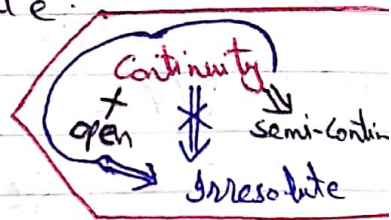 Continuity
+
open
semi-contin
Irresolute